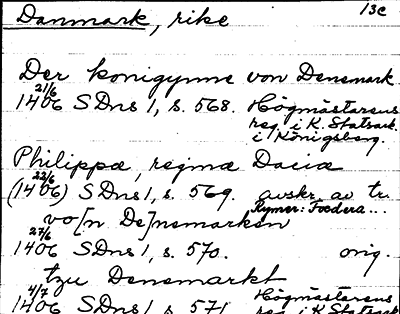 Danmark, rike 13c
Der konigynne von Denemark
21/6
1406 SDns 1, s. 568. Högmästarens
reg. i K. Statsark.
i Königsberg.
Philippæ, regina Daciæ
22/6
(1406) SDns 1, s. 569. avskr. av tr.
Rymer: Foedera...
vo[n De]nemarken
27/6
1406 SDns 1, s. 570. orig.
tzu Denemarkt
4/7
1406 SDns 1, s. 571. Högmästarens
reg. i K. Statsark.